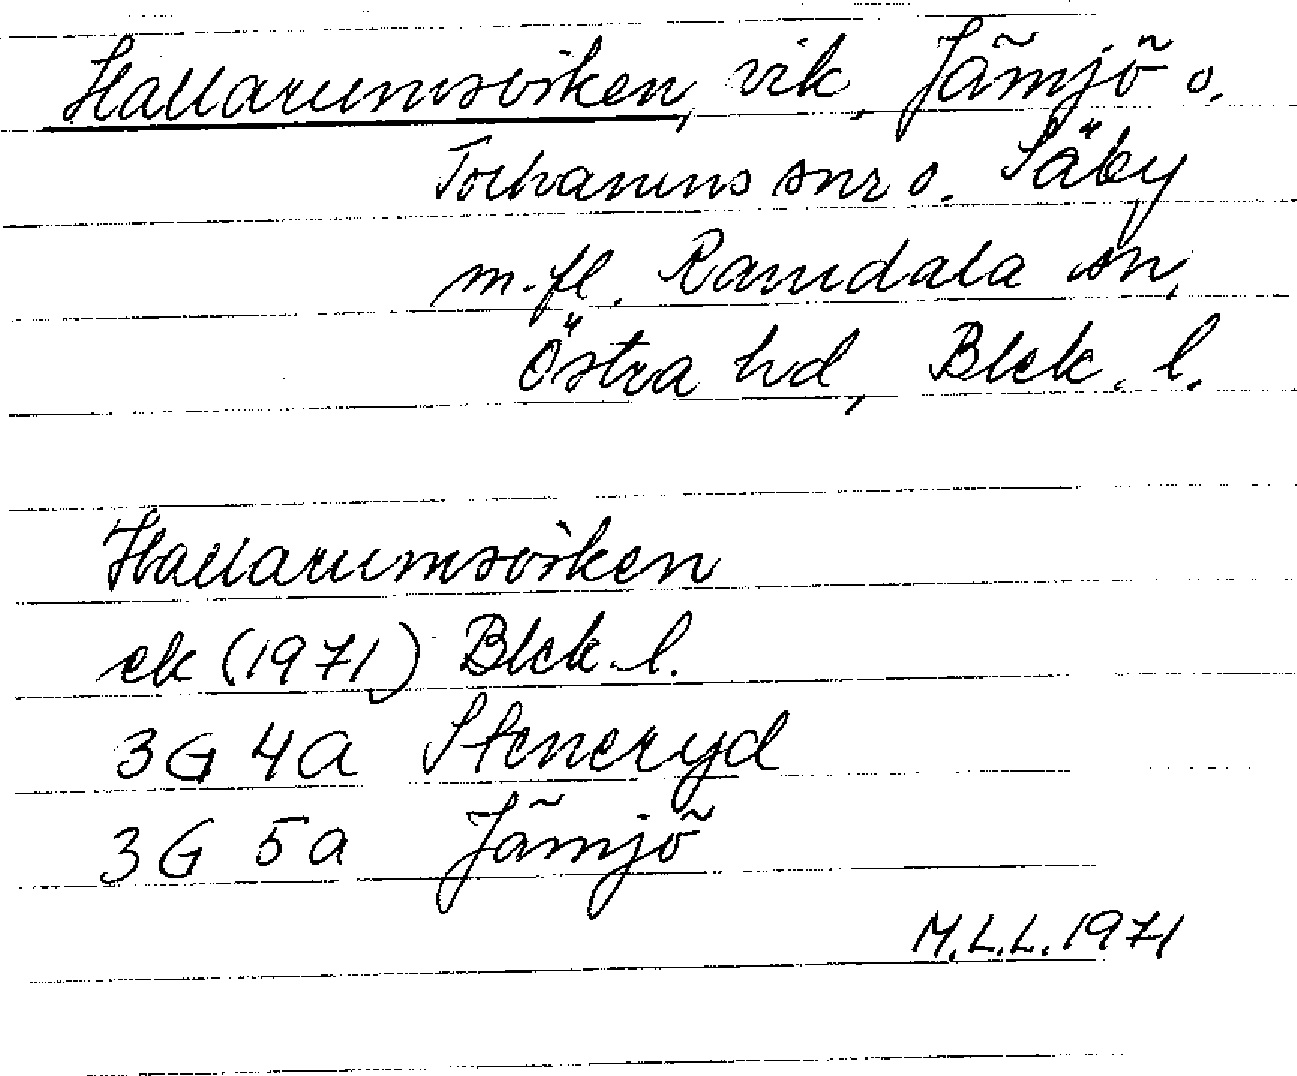 Hallarumsviken, vik, Jämjö o.
Torhamns snr o. Säby
m.fl. Ramdala sn,
Östra hd, Blek. l.
Hallarumsviken
ek (1971) Blek. l.
3G 4a Steneryd
3G 5a Jämjö
M.L.L. 1971